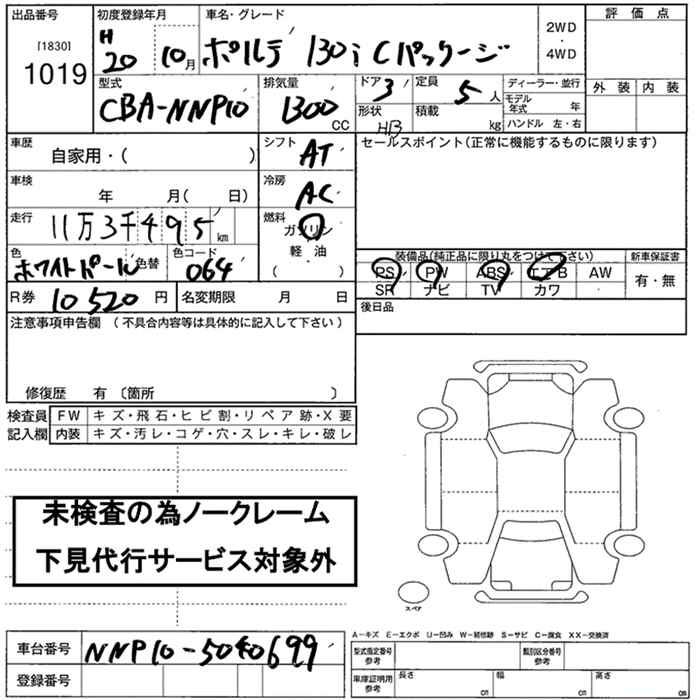 出品番号
[1830]
1019
初度登録年月
H
20 10月
車名・グレード
ポルテ 130i Cパッケージ
2WD
・
4WD
評価点
外装 内装
型式
CBA-NNP10
排気量
1300
CC
ドア 3
形状 HB
定員 5 人
積載 kg
ディーラー・並行
モデル年式 年
ハンドル 左・右
車歴
自家用・( )
シフト
AT
セールスポイント(正常に機能するものに限ります)
車検
年 月( 日)
冷房
AC
走行
11万3千495 km
燃料
ガソリン
軽・油
( ・ )
色
ホワイトパール
色替
色コード
064
装備品(純正品に限り丸をつけて下さい)
新車保証書
PS PW ABS エアB AW
SR ナビ TV カワ
有・無
R券 10520 円
名変期限 月 日
後日品
注意事項申告欄 (不具合内容等は具体的に記入して下さい)
修復歴 有 〔箇所 〕
検査員
記入欄
FW キズ・飛石・ヒビ割・リペア跡・X要
内装 キズ・汚レ・コゲ・穴・スレ・キレ・破レ
未検査の為ノークレーム
下見代行サービス対象外
スペア
A-キズ E-エクボ U-凹み W-補修跡 S-サビ C-腐食 XX-交換済
車台番号 NNP10-5040699
登録番号
型式指定番号
参考
類別区分番号
参考
車庫証明用
参考
長さ cm
幅 cm
高さ cm